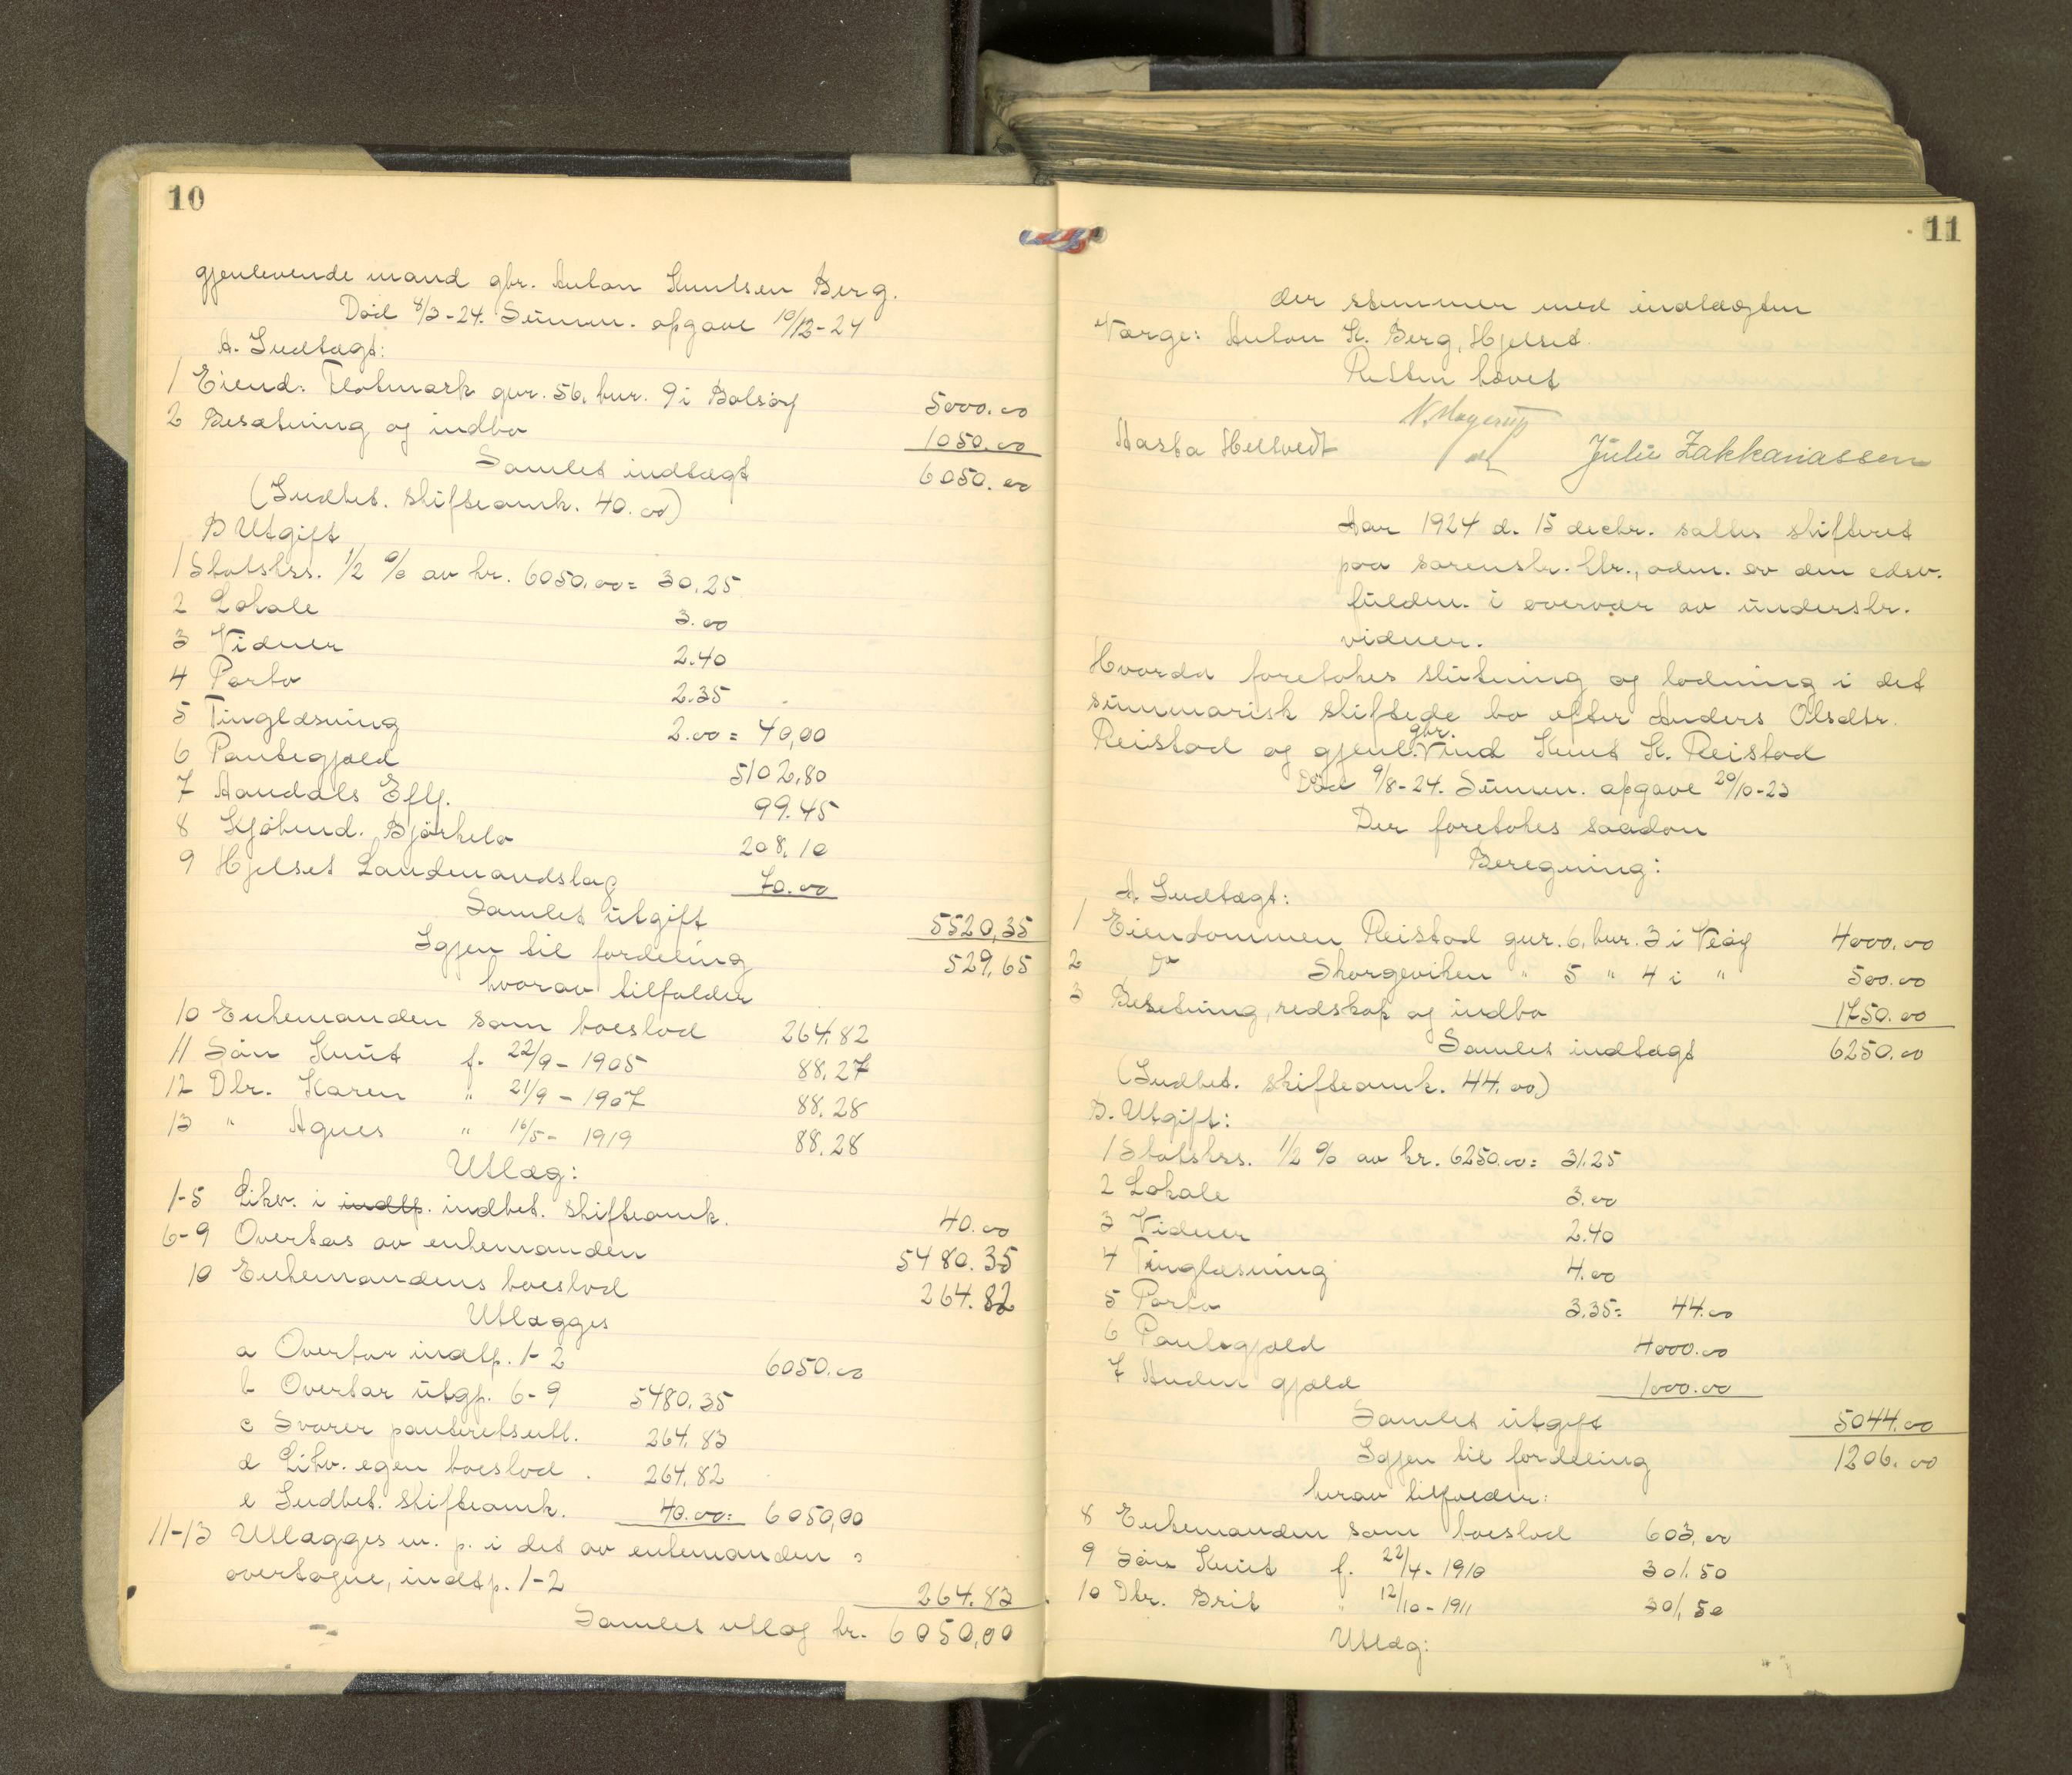 10
gjenlevende mand gbr. Anton Knutsen Berg.
Död 8/3-24. Summ. opgave 10/12-24
A. Indtægt:
1 Eiend. Flotmark gnr. 56, bnr. 9 i Bolsöy 5000.00
2 Besætning og indbo 1050.00
Samlet indtægt 6050.00
(Indbet. skifteomk. 40.00)
B Utgift
1 Statskss. 1/2 % av kr. 6050.00 = 30.25
2 Lokale 3.00
3 Vidner 2.40
4 Porto 2.35
5 Tinglæsning 2.00 = 40,00
6 Pantegjæld 5102,80
7 Aandals Eftf. 99.45
8 Kjöbmd. Björkelo 208,10
9 Hjelset Landmandslag 70.00
Samlet utgift 5520,35
Igjen til fordeling 529,65
hvorav tilfalder
10 Enkemanden som boeslod 264.82
11 Sön Knut f. 22/9-1905 88.27
12 Dtr. Karen " 21/9-1907 88.28
13 " Agnes " 16/5-1919 88.28
Utlæg:
1-5 Likv. i indtp. indbet. skifteomk. 40.00
6-9 Overtas av enkemanden 5480.35
10 Enkemandens boeslod 264.82
Utlægges
a Overtar indtp. 1-2 6050.00
b Overtar utgp. 6-9 5480.35
c Svarer panteretsutl. 264.83
d Likv. egen boeslod. 264.82
e Indbet. skifteomk. 40.00 = 6050,00
11-13 Utlægges m. p. i det av enkemanden
overtagne, indtp. 1-2 264.83
Samlet utlæg kr. 6050,00
11
der stemmer med indtægten
Værge: Anton K. Berg, Hjelset.
Retten hævet
N. Mayerup
Aasta Heltvedt Julie Zakkariassen
Aar 1924 d. 15 decbr. sattes skifteret
paa sorenskr. ktr., adm. av den edsv.
fuldm. i overvær av underskr.
vidner.
Hvorda foretokes slutning og lodning i det
summarisk skiftede bo efter Anders Olsdtr.
Reistad og gjenl. gbr. Knut K. Reistad
Död 9/8-24. Summ. opgave 20/10-23
Der foretokes saadan
Beregning:
A Indtægt:
1 Eiendommen Reistad gnr. 6, bnr. 3 i Veöy 4000.00
2 Do Skorgeviken " 5 " 4 i " 500.00
3 Besetning, redskap og indbo 1750.00
Samlet indtægt 6250.00
(Indbet. skifteomk. 44.00)
B. Utgift:
1 Statskss. 1/2 % av kr. 6250.00 = 31.25
2 Lokale 3.00
3 Vidner 2.40
4 Tinglæsning 4.00
5 Porto 3.35 = 44.00
6 Pantegjæld 4000.00
7 Anden gjæld 1000.00
Samlet utgift 5044.00
Igjen til fordeling 1206.00
hvrav tilfalder:
8 Enkemanden som boeslod 603,00
9 Sön Knut f. 22/4-1910 301.50
10 Dtr. Brit " 12/10-1911 301,50
Utlæg: